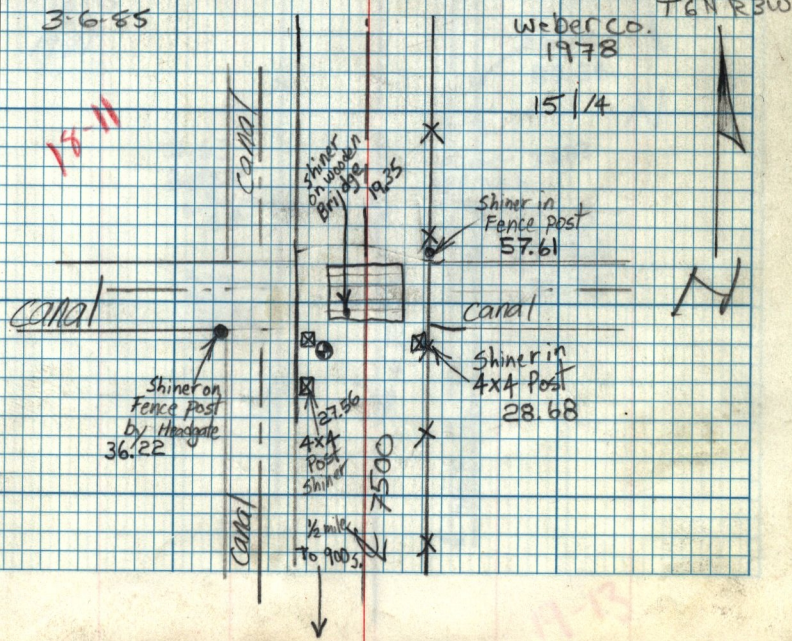 3-6-85
Weber Co.
1978
T6N R3W
15 | 14
18-11
Canal
Shiner
on wooden
Bridge
19.35
Shiner in
Fence Post
57.61
N
Canal
Canal
Shiner on
Fence Post
by Headgate
36.22
Shiner in
4x4 Post
28.68
27.56
4x4
Post
Shiner
7500
W
Canal
1/2 mile
To 900 S.